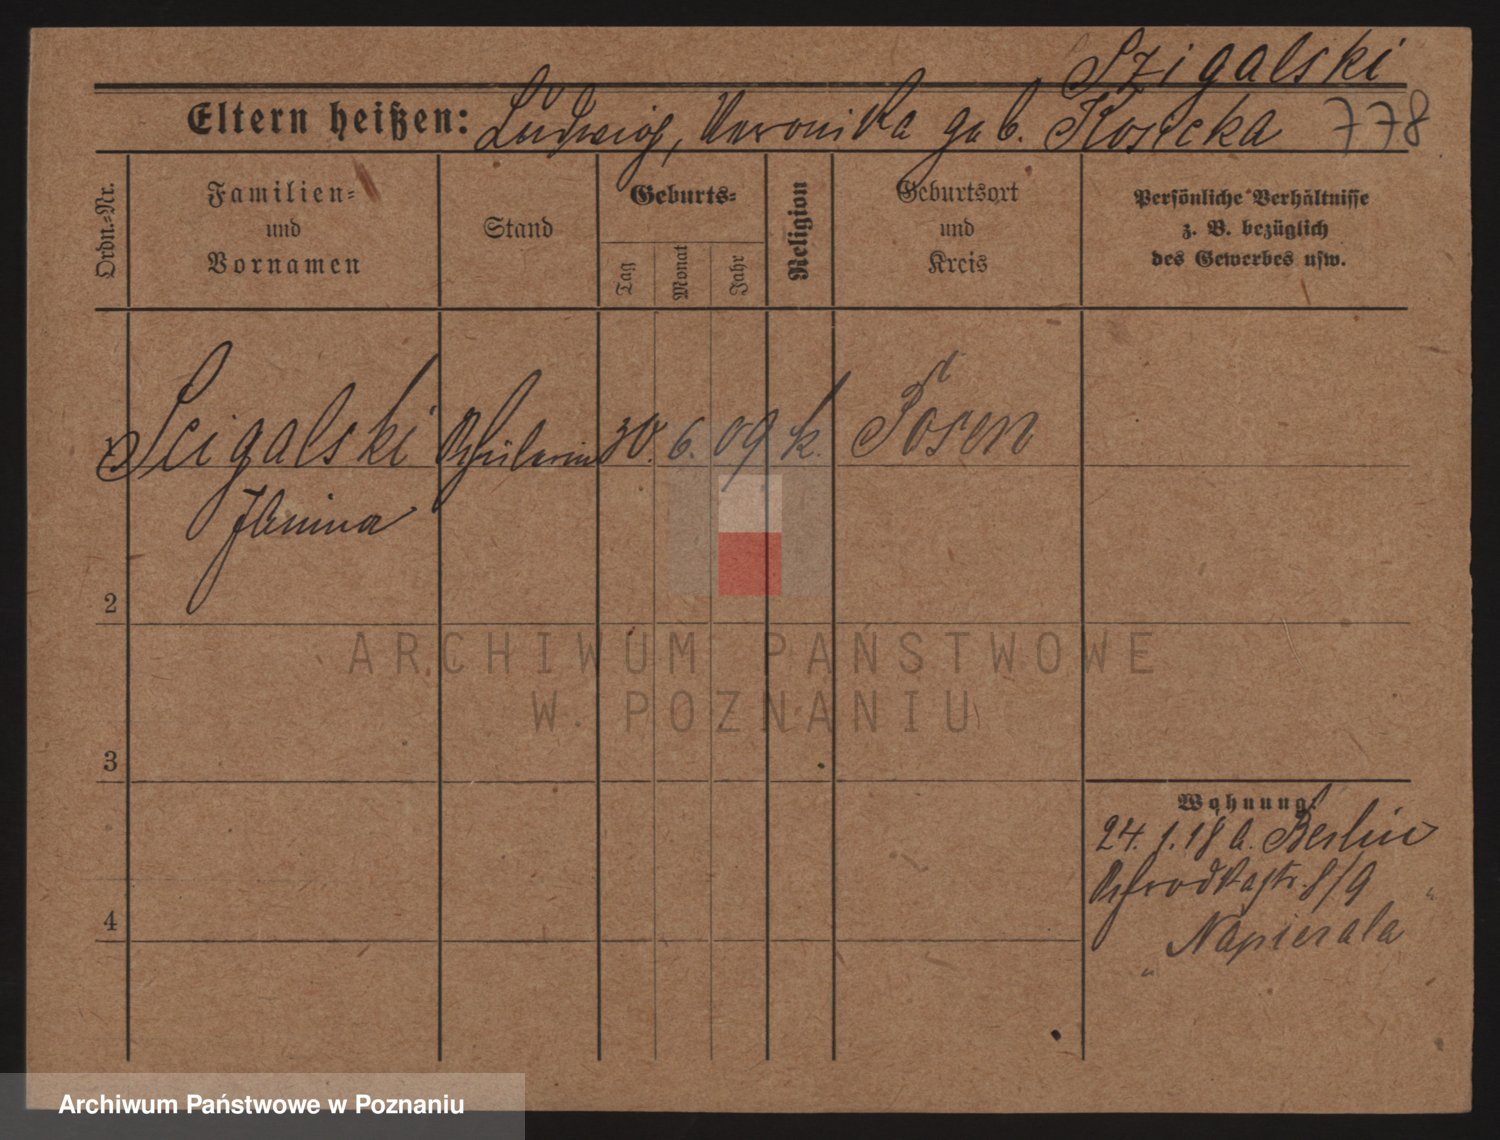 Szigalski
Eltern heißen: Ludwig, Veronika geb. Kosicka 778
Ordn.=Nr.
Familien=
und
Vornamen
Stand
Geburts=
Tag
Monat
Jahr
Religion
Geburtsort
und
Kreis
Persönliche Verhältnisse
z. B. bezüglich
des Gewerbes usw.
Scigalski Schülerin 30. 6. 09 k. Posen
Janina
2
3
4
Wohnung:
24. 1. 18 a. Berlin
Schrodkastr. 8/9
"Napierala"
ARCHIWUM PAŃSTWOWE
W POZNANIU
Archiwum Państwowe w Poznaniu